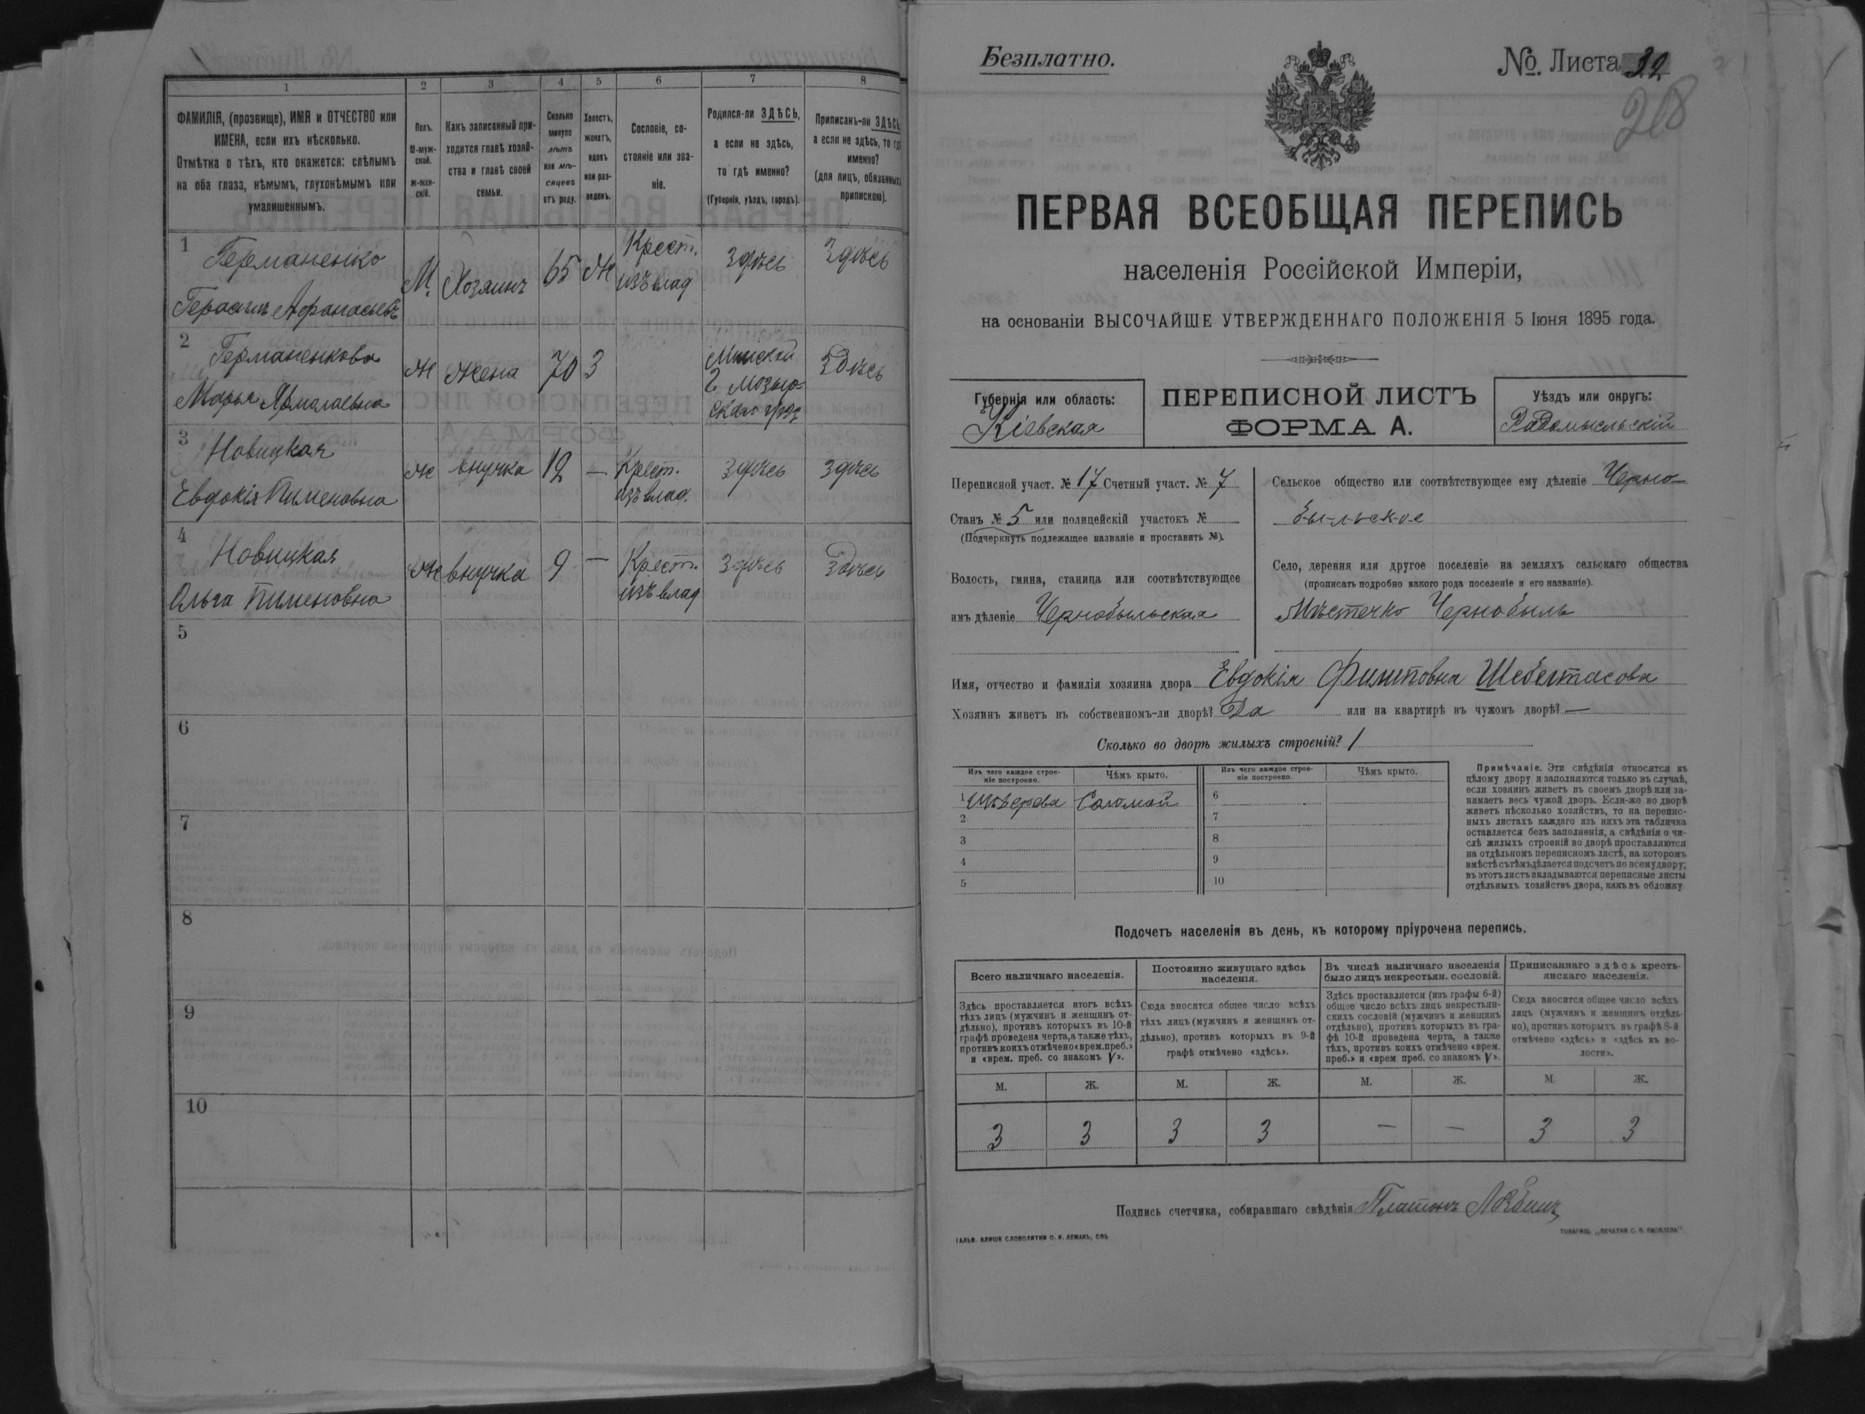 1 2 3 4 5 6 7 8
ФАМИЛІЯ, (прозвище), ИМЯ и ОТЧЕСТВО или
ИМЕНА, если ихъ нѣсколько.
Отмѣтка о тѣхъ, кто окажется: слѣпымъ
на оба глаза, нѣмымъ, глухонѣмымъ или
умалишеннымъ.
Полъ.
М-муж-
ской.
Ж-жен-
скій.
Какъ записанный при-
ходится главѣ хозяй-
ства и главѣ своей
семьи.
Сколько
минуло
лѣтъ
или мѣ-
сяцевъ
отъ роду.
Холостъ,
женатъ,
вдовъ
или раз-
веденъ.
Сословіе, со-
стояніе или зва-
ніе.
Родился-ли ЗДѢСЬ,
а если не здѣсь,
то гдѣ именно?
(Губернія, уѣздъ, городъ).
Приписанъ-ли ЗДѢСЬ
а если не здѣсь, то гдѣ
именно?
(для лицъ, обязанныхъ
припискою).
1
Германенко
Герасимъ Афанасьевъ
М. Хозяинъ 65 Ж
Крест.
изъ влад
Здѣсь
Здѣсь
2
Германенкова
Марья
ж жена 70 З
Минской
г мозыр-
скаго
Здѣсь
3
Новицкая
Евдокія Пименовна
ж внучка 12 —
Крест.
изъ влад.
Здѣсь
Здѣсь
4
Новицкая
Ольга Пименовна
ж внучка 9 —
Крест.
изъ влад
Здѣсь
Здѣсь
5
6
7
8
9
10
Безплатно.
№. Листа 32
218
ПЕРВАЯ ВСЕОБЩАЯ ПЕРЕПИСЬ
населенія Россійской Имперіи,
на основаніи ВЫСОЧАЙШЕ УТВЕРЖДЕННАГО ПОЛОЖЕНІЯ 5 Іюня 1895 года.
Губернія или область:
Кіевская
ПЕРЕПИСНОЙ ЛИСТЪ
ФОРМА А.
Уѣздъ или округъ:
Радомысльскій
Переписной участ. № 17 Счетный участ. № 7
Станъ № 5 или полицейскій участокъ №
(Подчеркнуть подлежащее названіе и проставить №).
Волость, гмина, станица или соотвѣтствующее
имъ дѣленіе Чернобыльская
Сельское общество или соотвѣтствующее ему дѣленіе Черно-
быльское
Село, деревня или другое поселеніе на земляхъ сельскаго общества
(прописать подробно какого рода поселеніе и его названіе).
Мѣстечко Чернобыль
Имя, отчество и фамилія хозяина двора Евдокія Филиповна
Хозяинъ живетъ въ собственномъ-ли дворѣ? Да или на квартирѣ въ чужомъ дворѣ? —
Сколько во дворѣ жилыхъ строеній? 1
Изъ чего каждое строе-
ніе построено.
Чѣмъ крыто.
Изъ чего каждое строе-
ніе построено.
Чѣмъ крыто.
1 Соломой
2
3
4
5
6
7
8
9
10
Примѣчаніе. Эти свѣдѣнія относятся къ
цѣлому двору и заполняются только въ случаѣ,
если хозяинъ живетъ въ своемъ дворѣ или за-
нимаетъ весь чужой дворъ. Если-же во дворѣ
живетъ нѣсколько хозяйствъ, то на перепис-
ныхъ листахъ каждаго изъ нихъ эта табличка
оставляется безъ заполненія, а свѣдѣнія о чи-
слѣ жилыхъ строеній во дворѣ проставляются
на отдѣльномъ переписномъ листѣ, на которомъ
вмѣстѣ съ тѣмъ дѣлается подсчетъ по всему двору;
въ этотъ листъ вкладываются переписные листы
отдѣльныхъ хозяйствъ двора, какъ въ обложку.
Подсчетъ населенія въ день, къ которому пріурочена перепись.
Всего наличнаго населенія.
Здѣсь проставляется итогъ всѣхъ
тѣхъ лицъ (мужчинъ и женщинъ от-
дѣльно), противъ которыхъ въ 10-й
графѣ проведена черта, а также тѣхъ,
противъ коихъ отмѣчено «врем. преб.»
и «врем. преб. со знакомъ V».
Постоянно живущаго здѣсь
населенія.
Сюда вносится общее число всѣхъ
тѣхъ лицъ (мужчинъ и женщинъ от-
дѣльно), противъ которыхъ въ 9-й
графѣ отмѣчено «здѣсь».
Въ числѣ наличнаго населенія
было лицъ некрестьян. сословій.
Здѣсь проставляется (изъ графы 6-й)
общее число всѣхъ лицъ некрестьян-
скихъ сословій (мужчинъ и женщинъ
отдѣльно), противъ которыхъ въ гра-
фѣ 10-й проведена черта, а также
тѣхъ, противъ коихъ отмѣчено «врем.
преб.» и «врем. преб. со знакомъ V».
Приписаннаго здѣсь кресть-
янскаго населенія.
Сюда вносится общее число всѣхъ
лицъ (мужчинъ и женщинъ отдѣль-
но), противъ которыхъ въ графѣ 8-й
отмѣчено «здѣсь» и «здѣсь въ во-
лости».
М. Ж. М. Ж. М. Ж. М. Ж.
3 3 3 3 — — 3 3
Подпись счетчика, собиравшаго свѣдѣнія Платонъ